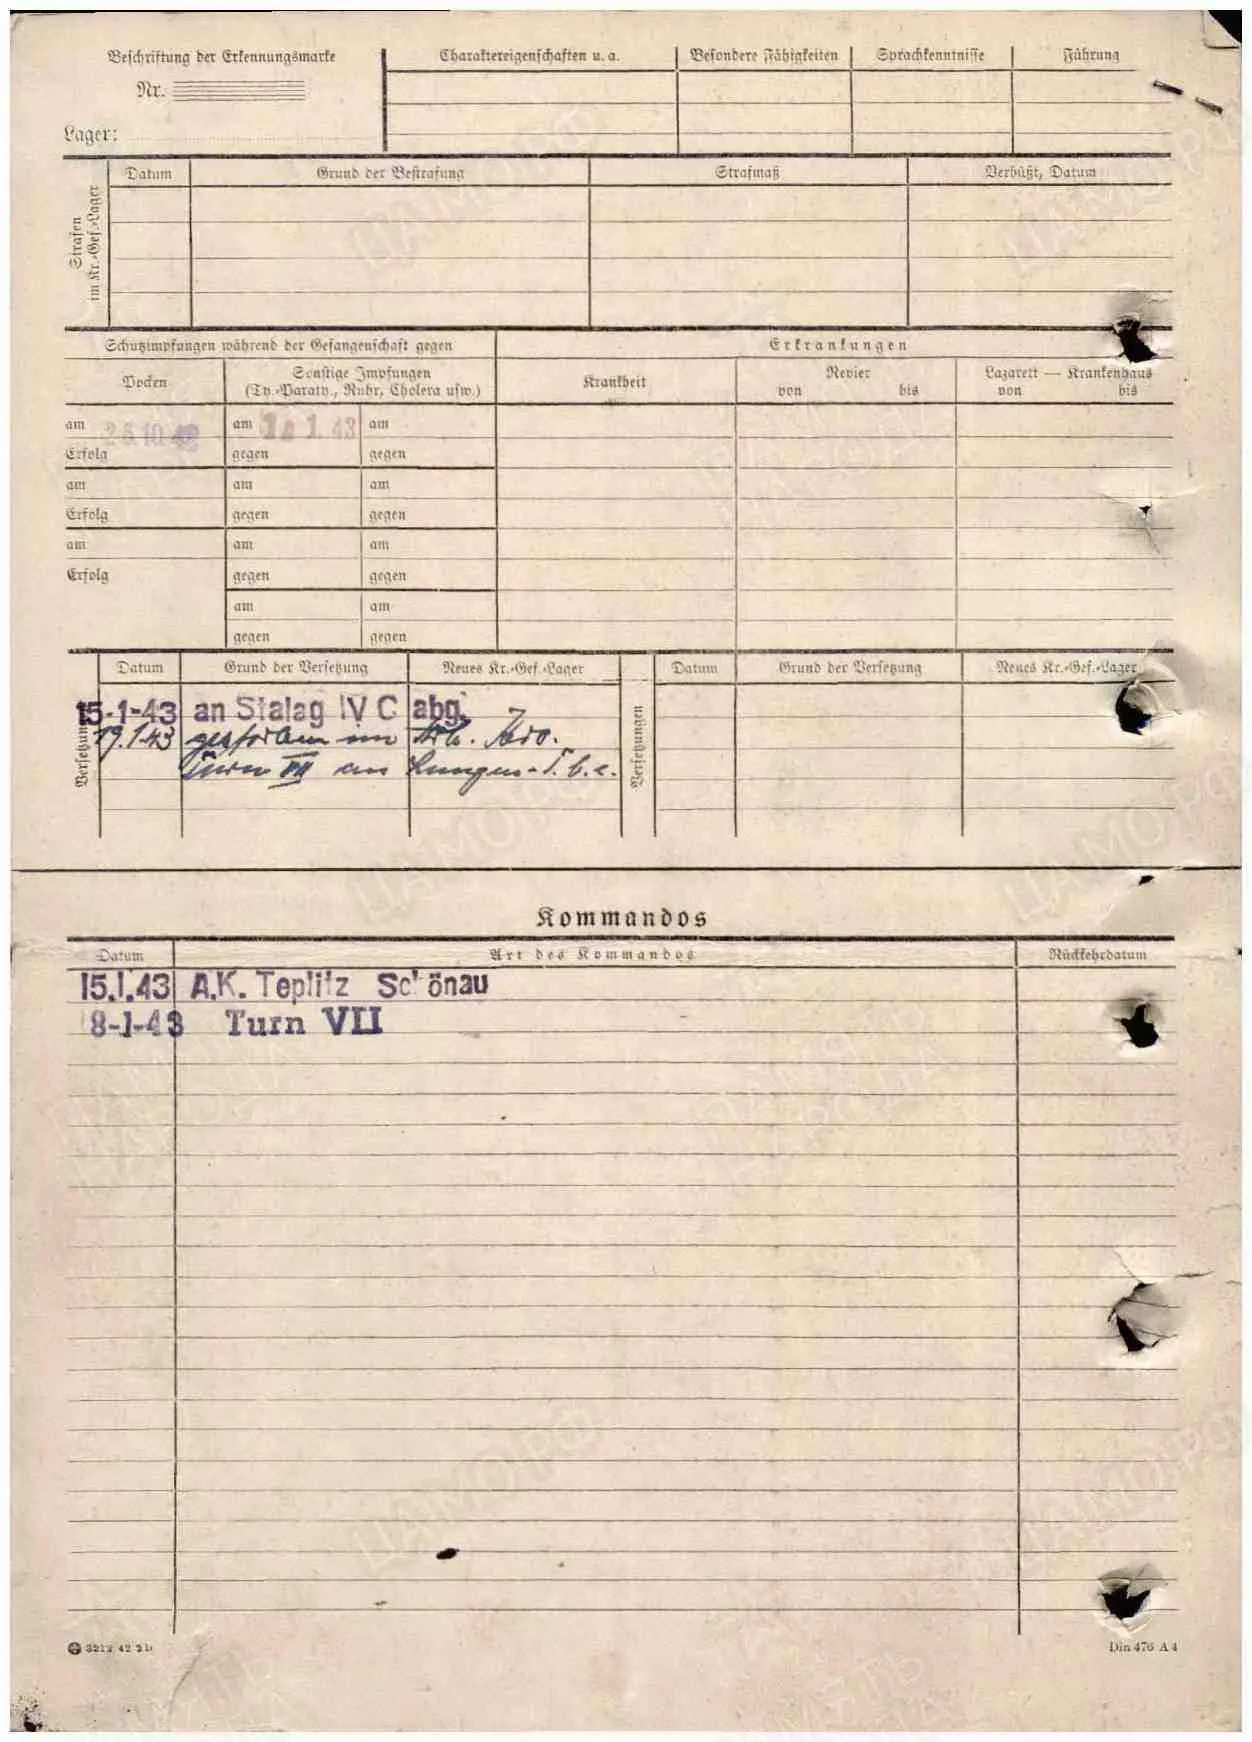 Beschriftung der Erkennungsmarke
Nr.
Lager:
Charaktereigenschaften u. a.
Besondere Fähigkeiten
Sprachkenntnisse
Führung
Strafen im Kr.-Gef.-Lager
Datum
Grund der Bestrafung
Strafmaß
Verbüßt, Datum
Schutzimpfungen während der Gefangenschaft gegen
Erkrankungen
Pocken
Sonstige Impfungen
(Ty.-Paraty., Ruhr, Cholera usw.)
Krankheit
Revier
von bis
Lazarett — Krankenhaus
von bis
am 26.10.42 am 1.43 am
Erfolg gegen gegen
am am am
Erfolg gegen gegen
am am am
Erfolg gegen gegen
am am
gegen gegen
Versetzungen
Datum Grund der Versetzung Neues Kr.-Gef.-Lager
15-1-43 an Stalag IV C abg.
19.1.43 gestorben im Arb. Kdo.
Turn VII an Lungen-T.b.c.
Versetzungen
Datum Grund der Versetzung Neues Kr.-Gef.-Lager
Kommandos
Datum Art des Kommandos Rückkehrdatum
15.1.43 A.K. Teplitz Schönau
18-1-43 Turn VII
Din 476 A4
ЦАМО РФ
ПАМЯТЬ НАРОДА